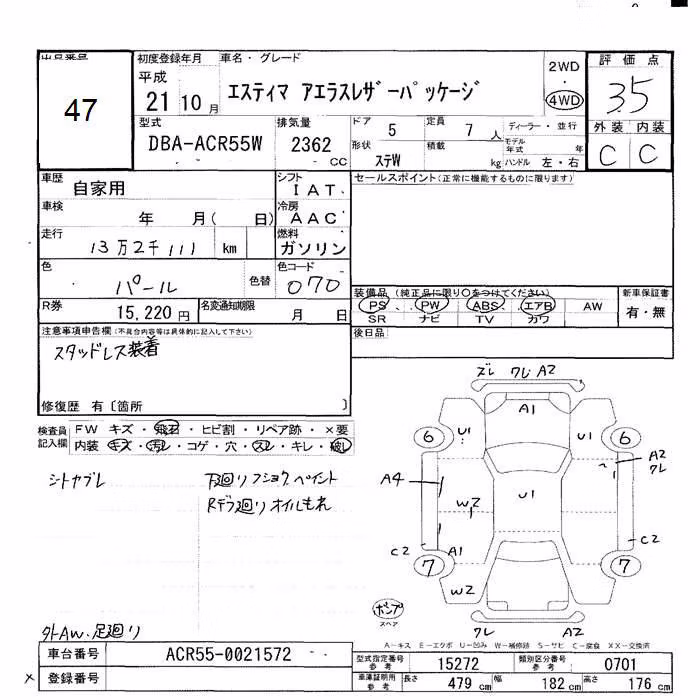 出品番号
47
初度登録年月
平成
21 10 月
車名・グレード
エスティマ アエラスレザーパッケージ
2WD
・
4WD
評価点
35
外装 内装
C C
型式
DBA-ACR55W
排気量
2362
CC
ドア 5
定員 7 人
ディーラー・並行
形状
ステW
積載
kg
モデル年式 年
ハンドル 左・右
車歴
自家用
シフト
IAT
セールスポイント(正常に機能するものに限ります)
車検
年 月( 日)
冷房
AAC
走行
13万2千111 km
燃料
ガソリン
色
パール
色替
色コード
070
装備品 (純正品に限り○をつけてください)
PS PW ABS エアB AW
SR ナビ TV カワ
新車保証書
有・無
R券
15,220 円
名変通知期限
月 日
後日品
注意事項申告欄(不具合内容等は具体的に記入して下さい)
スタッドレス装着
修復歴 有〔箇所 〕
検査員記入欄
FW キズ・飛石・ヒビ割・リペア跡・×要
内装 キズ・汚レ・コゲ・穴・スレ・キレ・破レ
シートヤブレ
下廻りフショクペイント
Rデフ廻りオイルもれ
外AW、足廻り
ズレ ワレ A2
A1
6 U1 U1 6
A2
ワレ
A4
W2 U1
C2 A1 C2
7 7
W2
ポンプ
スペア
ワレ A2
A-キズ E-エクボ U-凹み W-補修跡 S-サビ C-腐食 XX-交換済
車台番号
ACR55-0021572
型式指定番号
参考
15272
類別区分番号
参考
0701
× 登録番号
車庫証明用
参考
長さ 479 cm
幅 182 cm
高さ 176 cm